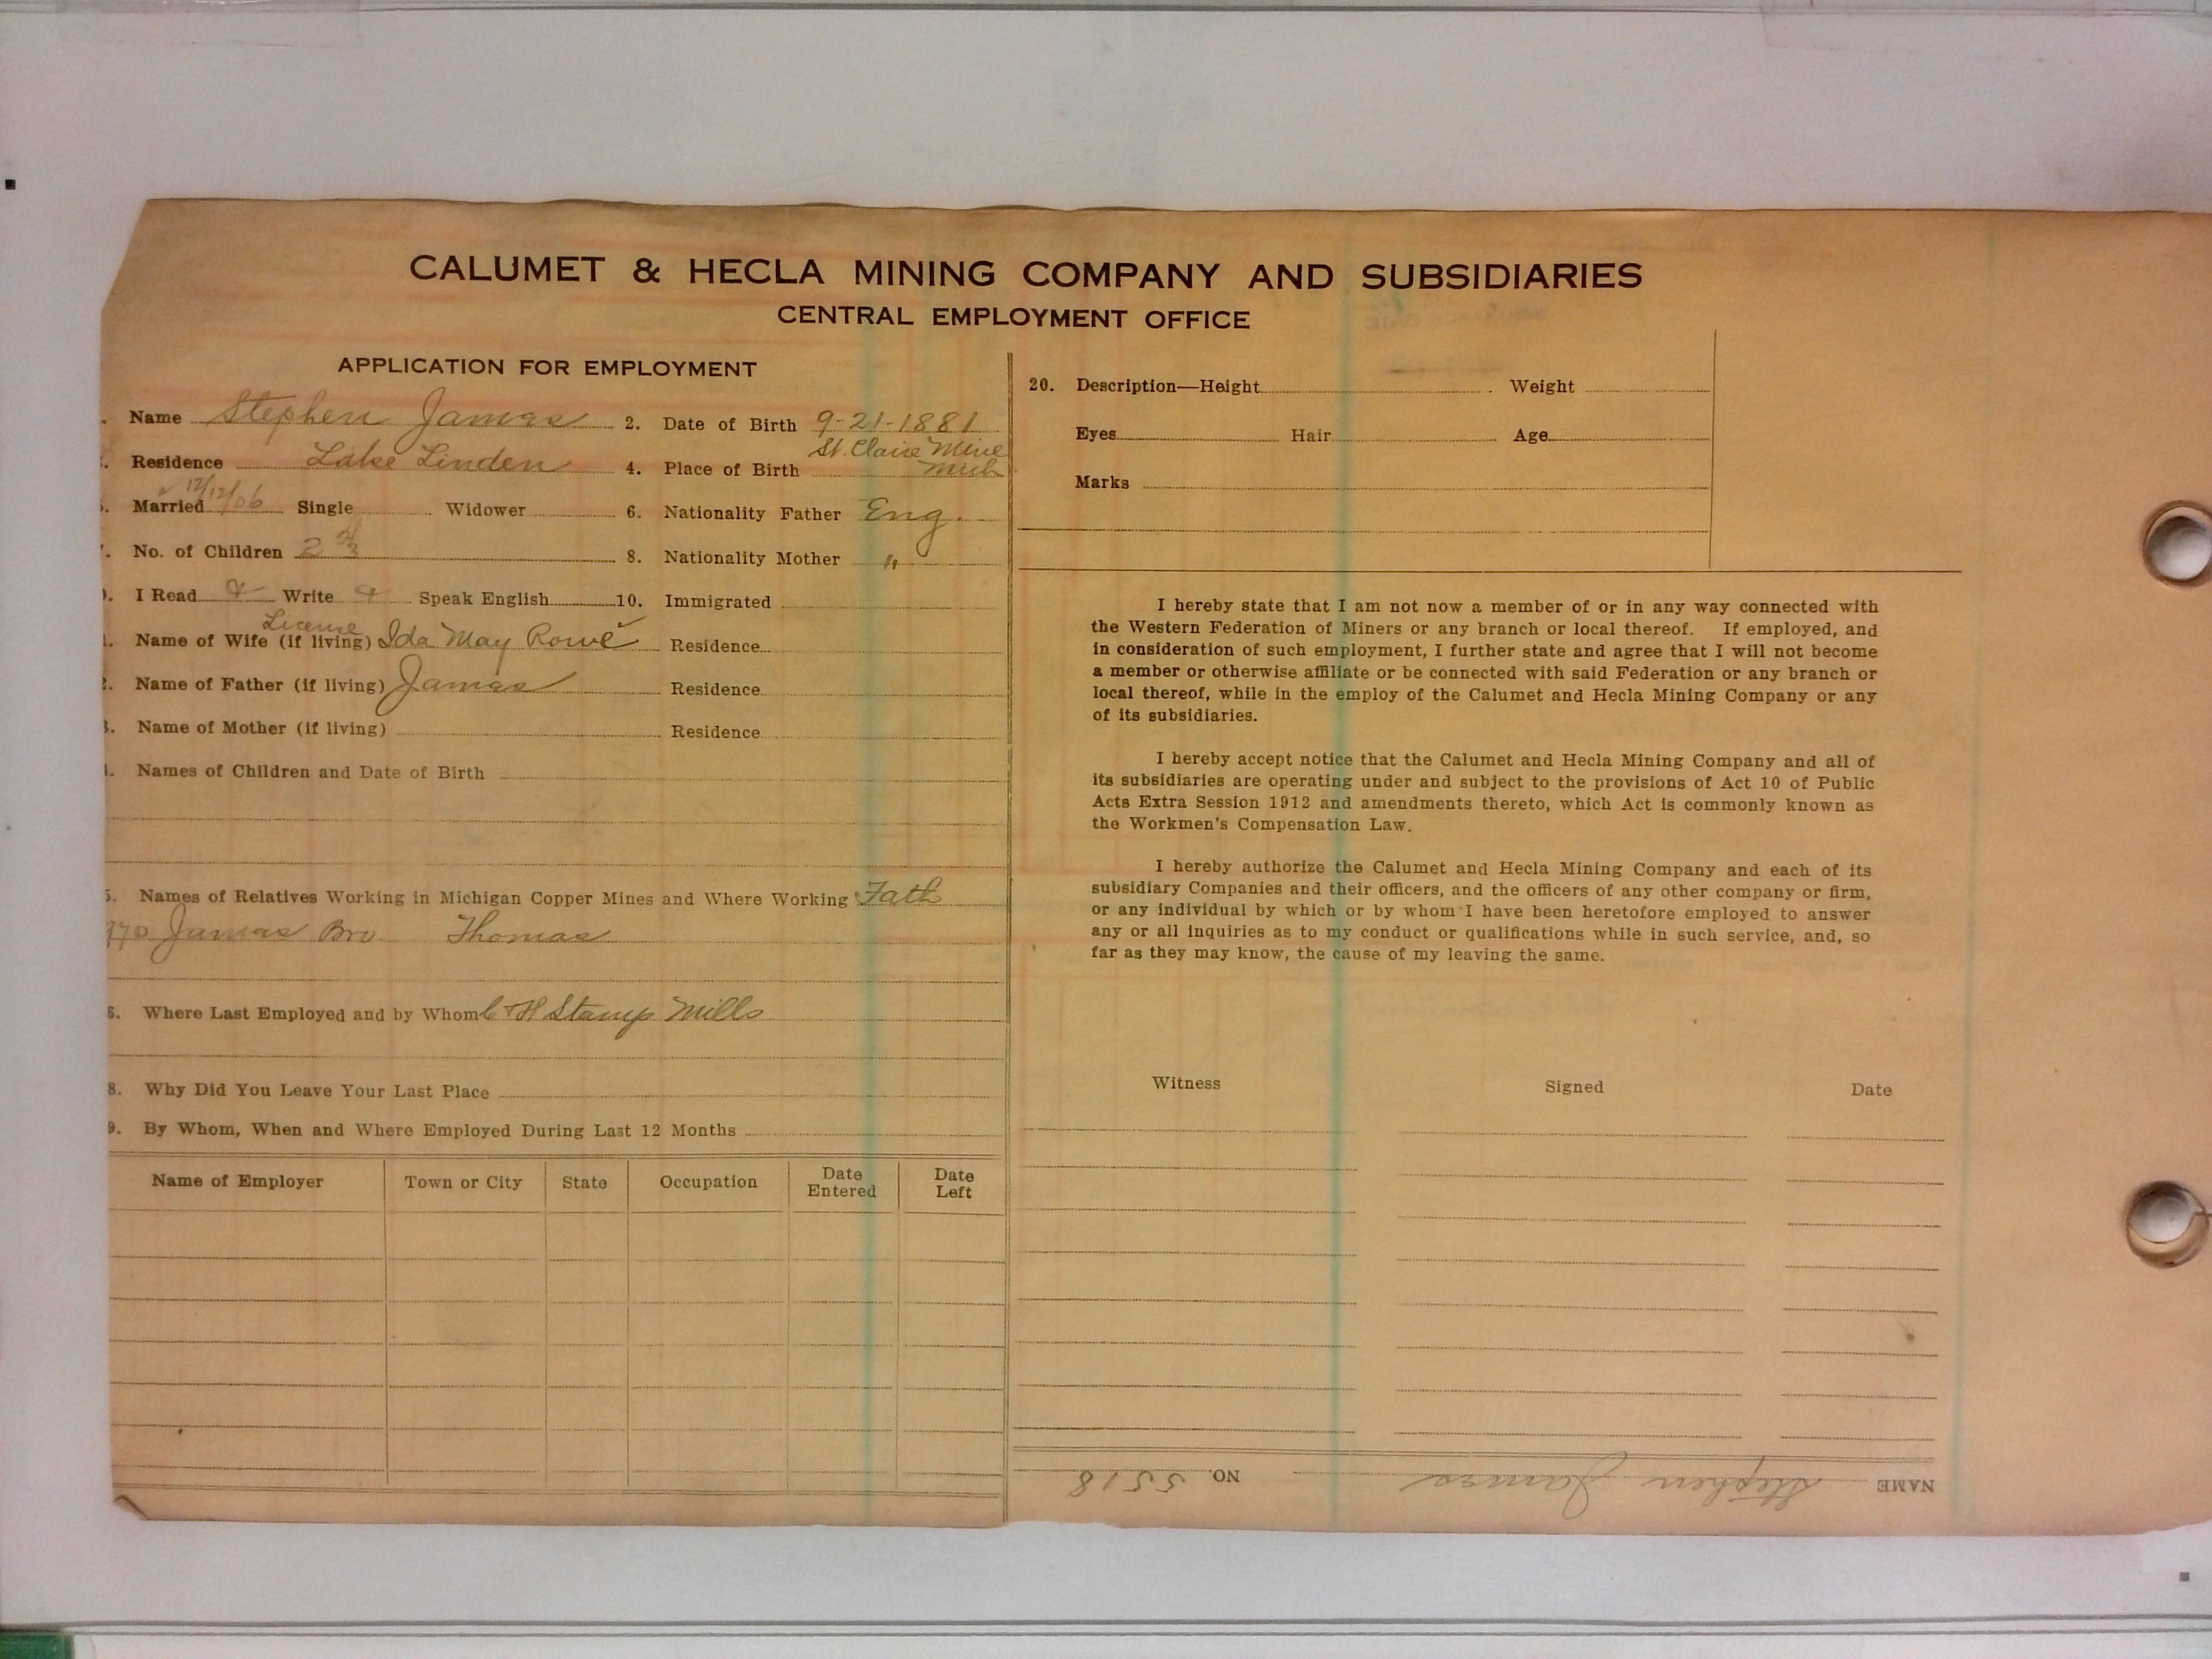 CALUMET & HECLA MINING COMPANY AND SUBSIDIARIES
CENTRAL EMPLOYMENT OFFICE
APPLICATION FOR EMPLOYMENT
. Name Stephen James 2. Date of Birth 9-21-1881
. Residence Lake Linden 4. Place of Birth St. Claire Mine Mich
. Married 12/12/06 Single Widower 6. Nationality Father Eng.
. No. of Children 2 8. Nationality Mother "
. I Read Write Speak English 10. Immigrated
License
. Name of Wife (if living) Ida May Rowe Residence
. Name of Father (if living) James Residence
. Name of Mother (if living) Residence
. Names of Children and Date of Birth
5. Names of Relatives Working in Michigan Copper Mines and Where Working Fath
970 James Bro Thomas
6. Where Last Employed and by Whom C+H Stamp Mills
8. Why Did You Leave Your Last Place
9. By Whom, When and Where Employed During Last 12 Months
Name of Employer Town or City State Occupation Date Entered Date Left
20. Description—Height Weight
Eyes Hair Age
Marks
I hereby state that I am not now a member of or in any way connected with
the Western Federation of Miners or any branch or local thereof. If employed, and
in consideration of such employment, I further state and agree that I will not become
a member or otherwise affiliate or be connected with said Federation or any branch or
local thereof, while in the employ of the Calumet and Hecla Mining Company or any
of its subsidiaries.
I hereby accept notice that the Calumet and Hecla Mining Company and all of
its subsidiaries are operating under and subject to the provisions of Act 10 of Public
Acts Extra Session 1912 and amendments thereto, which Act is commonly known as
the Workmen's Compensation Law.
I hereby authorize the Calumet and Hecla Mining Company and each of its
subsidiary Companies and their officers, and the officers of any other company or firm,
or any individual by which or by whom I have been heretofore employed to answer
any or all inquiries as to my conduct or qualifications while in such service, and, so
far as they may know, the cause of my leaving the same.
Witness Signed Date
NAME Stephen James NO. 5518